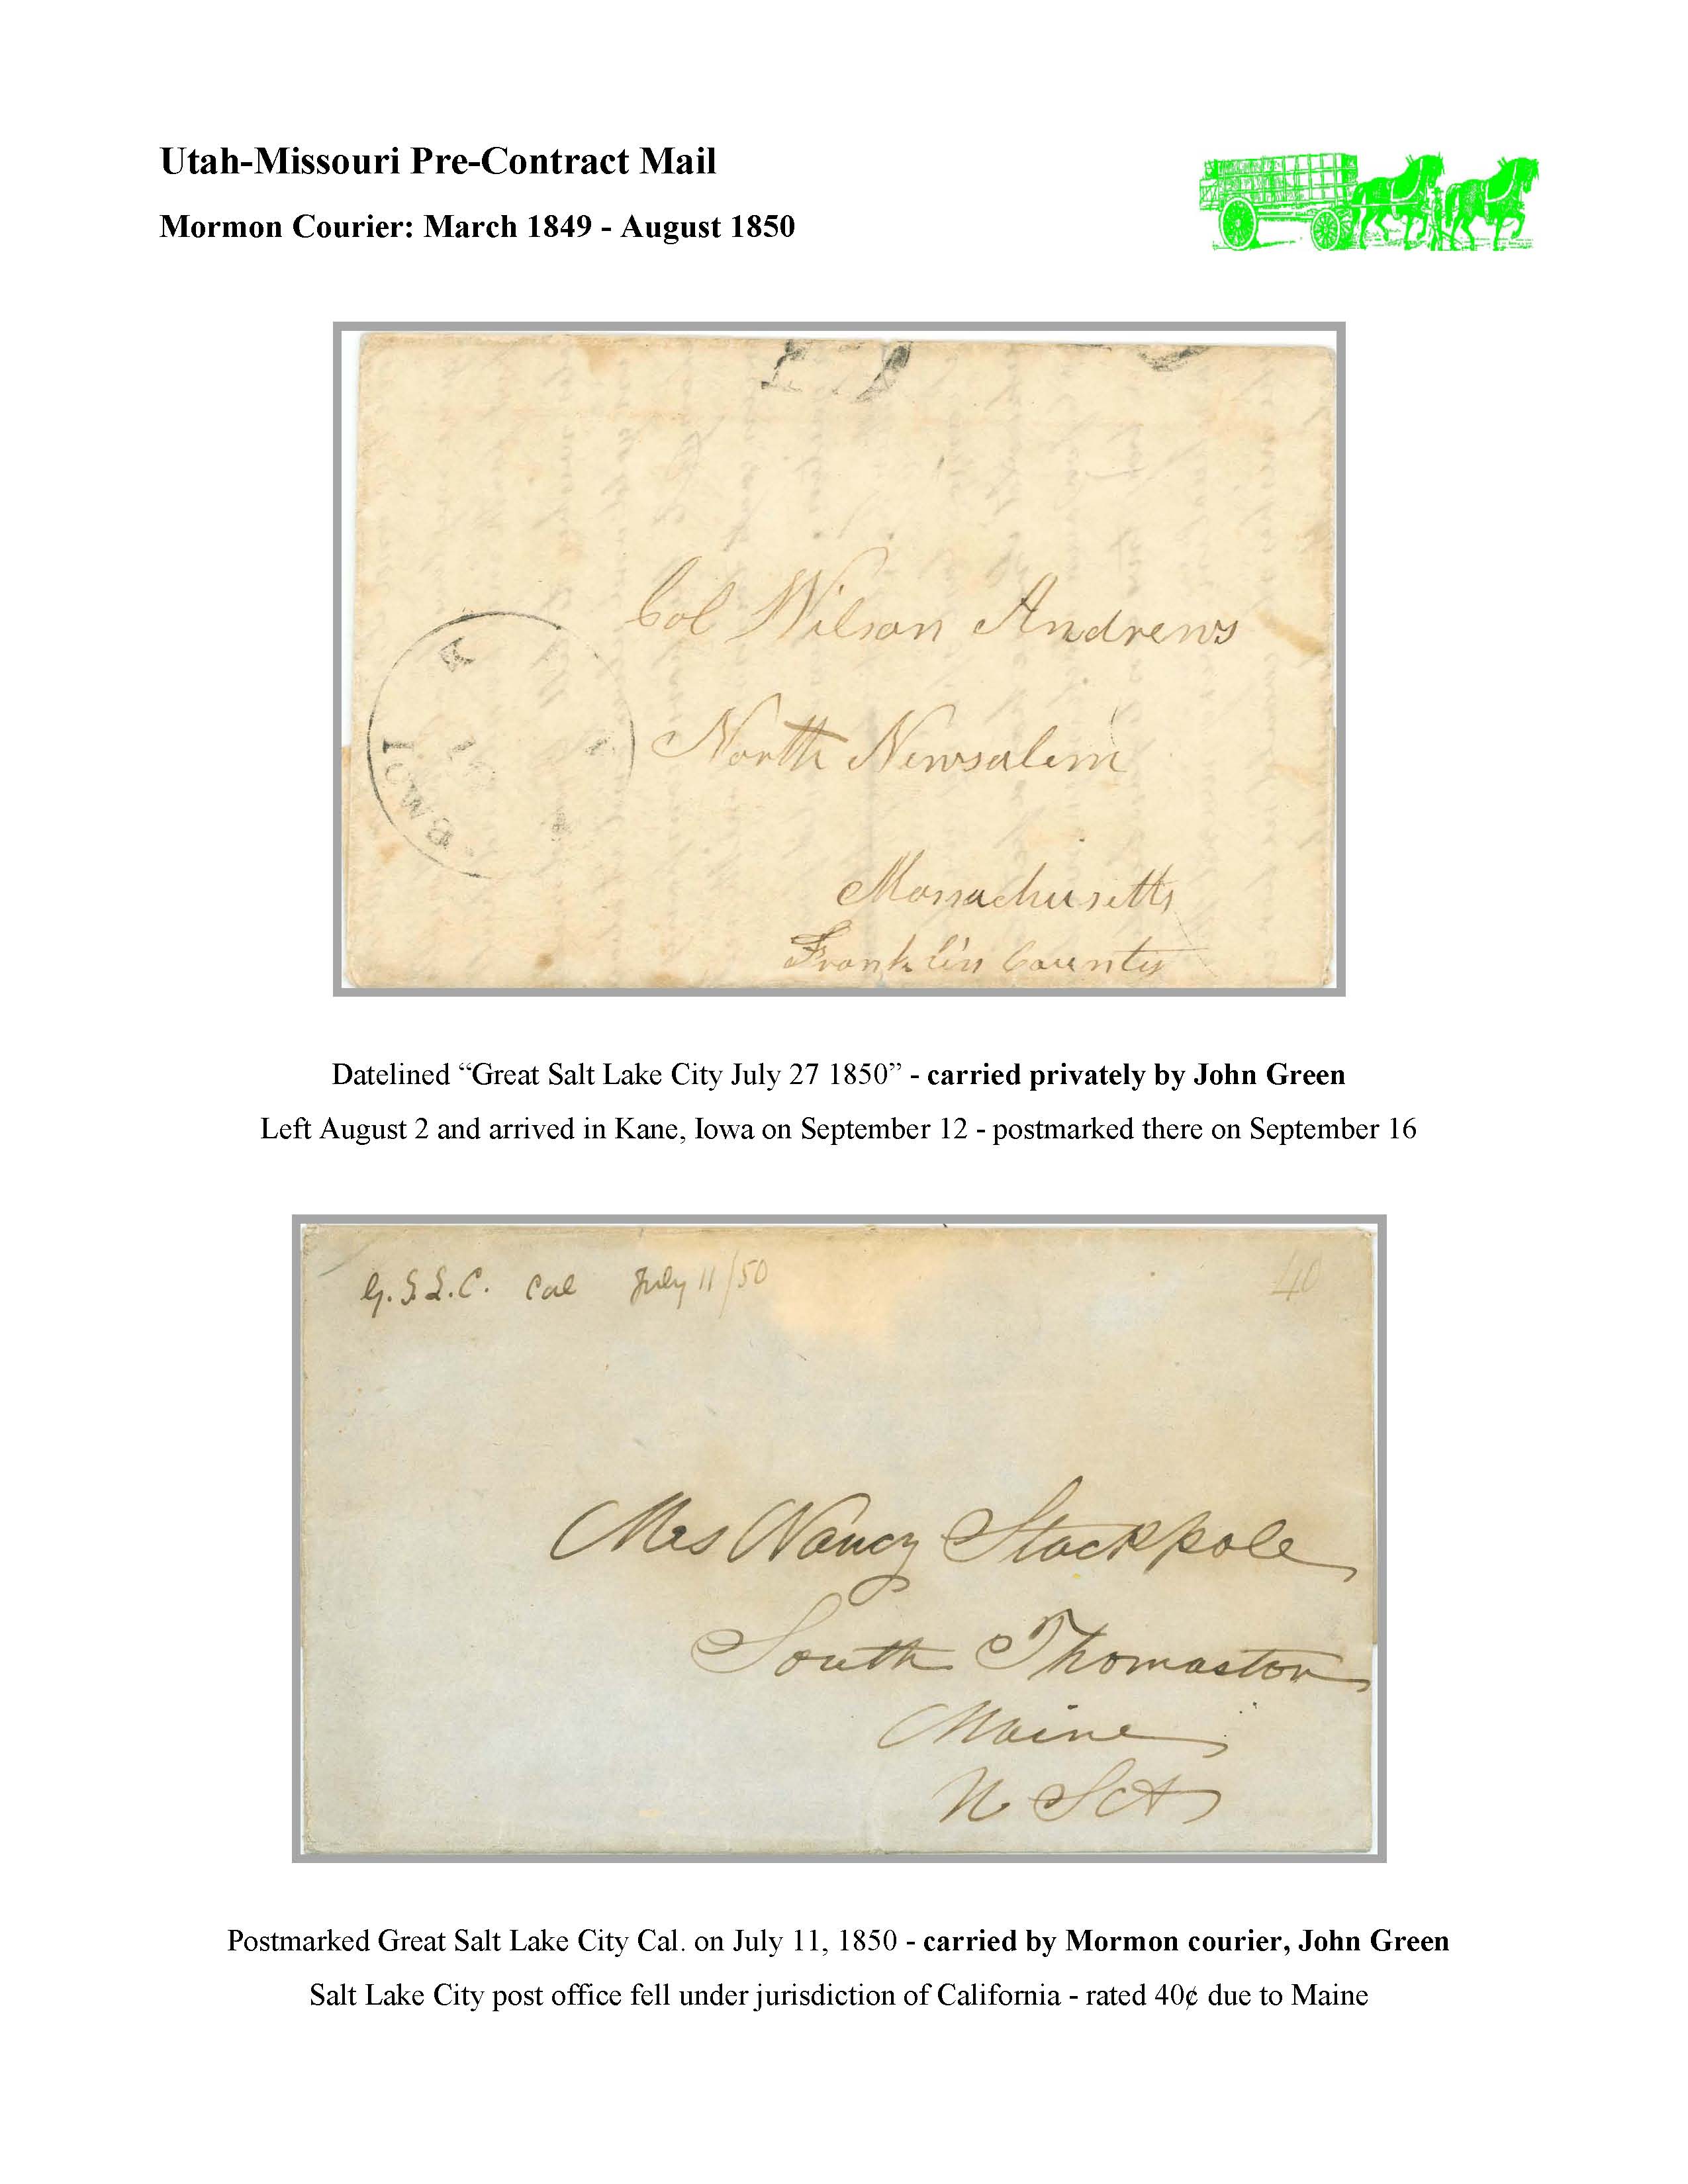 Utah-Missouri Pre-Contract Mail
Mormon Courier: March 1849 - August 1850
Col Wilson Andrews
North Newsalem
Massachusetts
Franklin County
IOWA
Datelined “Great Salt Lake City July 27 1850” - carried privately by John Green
Left August 2 and arrived in Kane, Iowa on September 12 - postmarked there on September 16
G.S.L.C. Cal July 11/50
40
Mrs Nancy Stackpole
South Thomaston
Maine
Postmarked Great Salt Lake City Cal. on July 11, 1850 - carried by Mormon courier, John Green
Salt Lake City post office fell under jurisdiction of California - rated 40¢ due to Maine